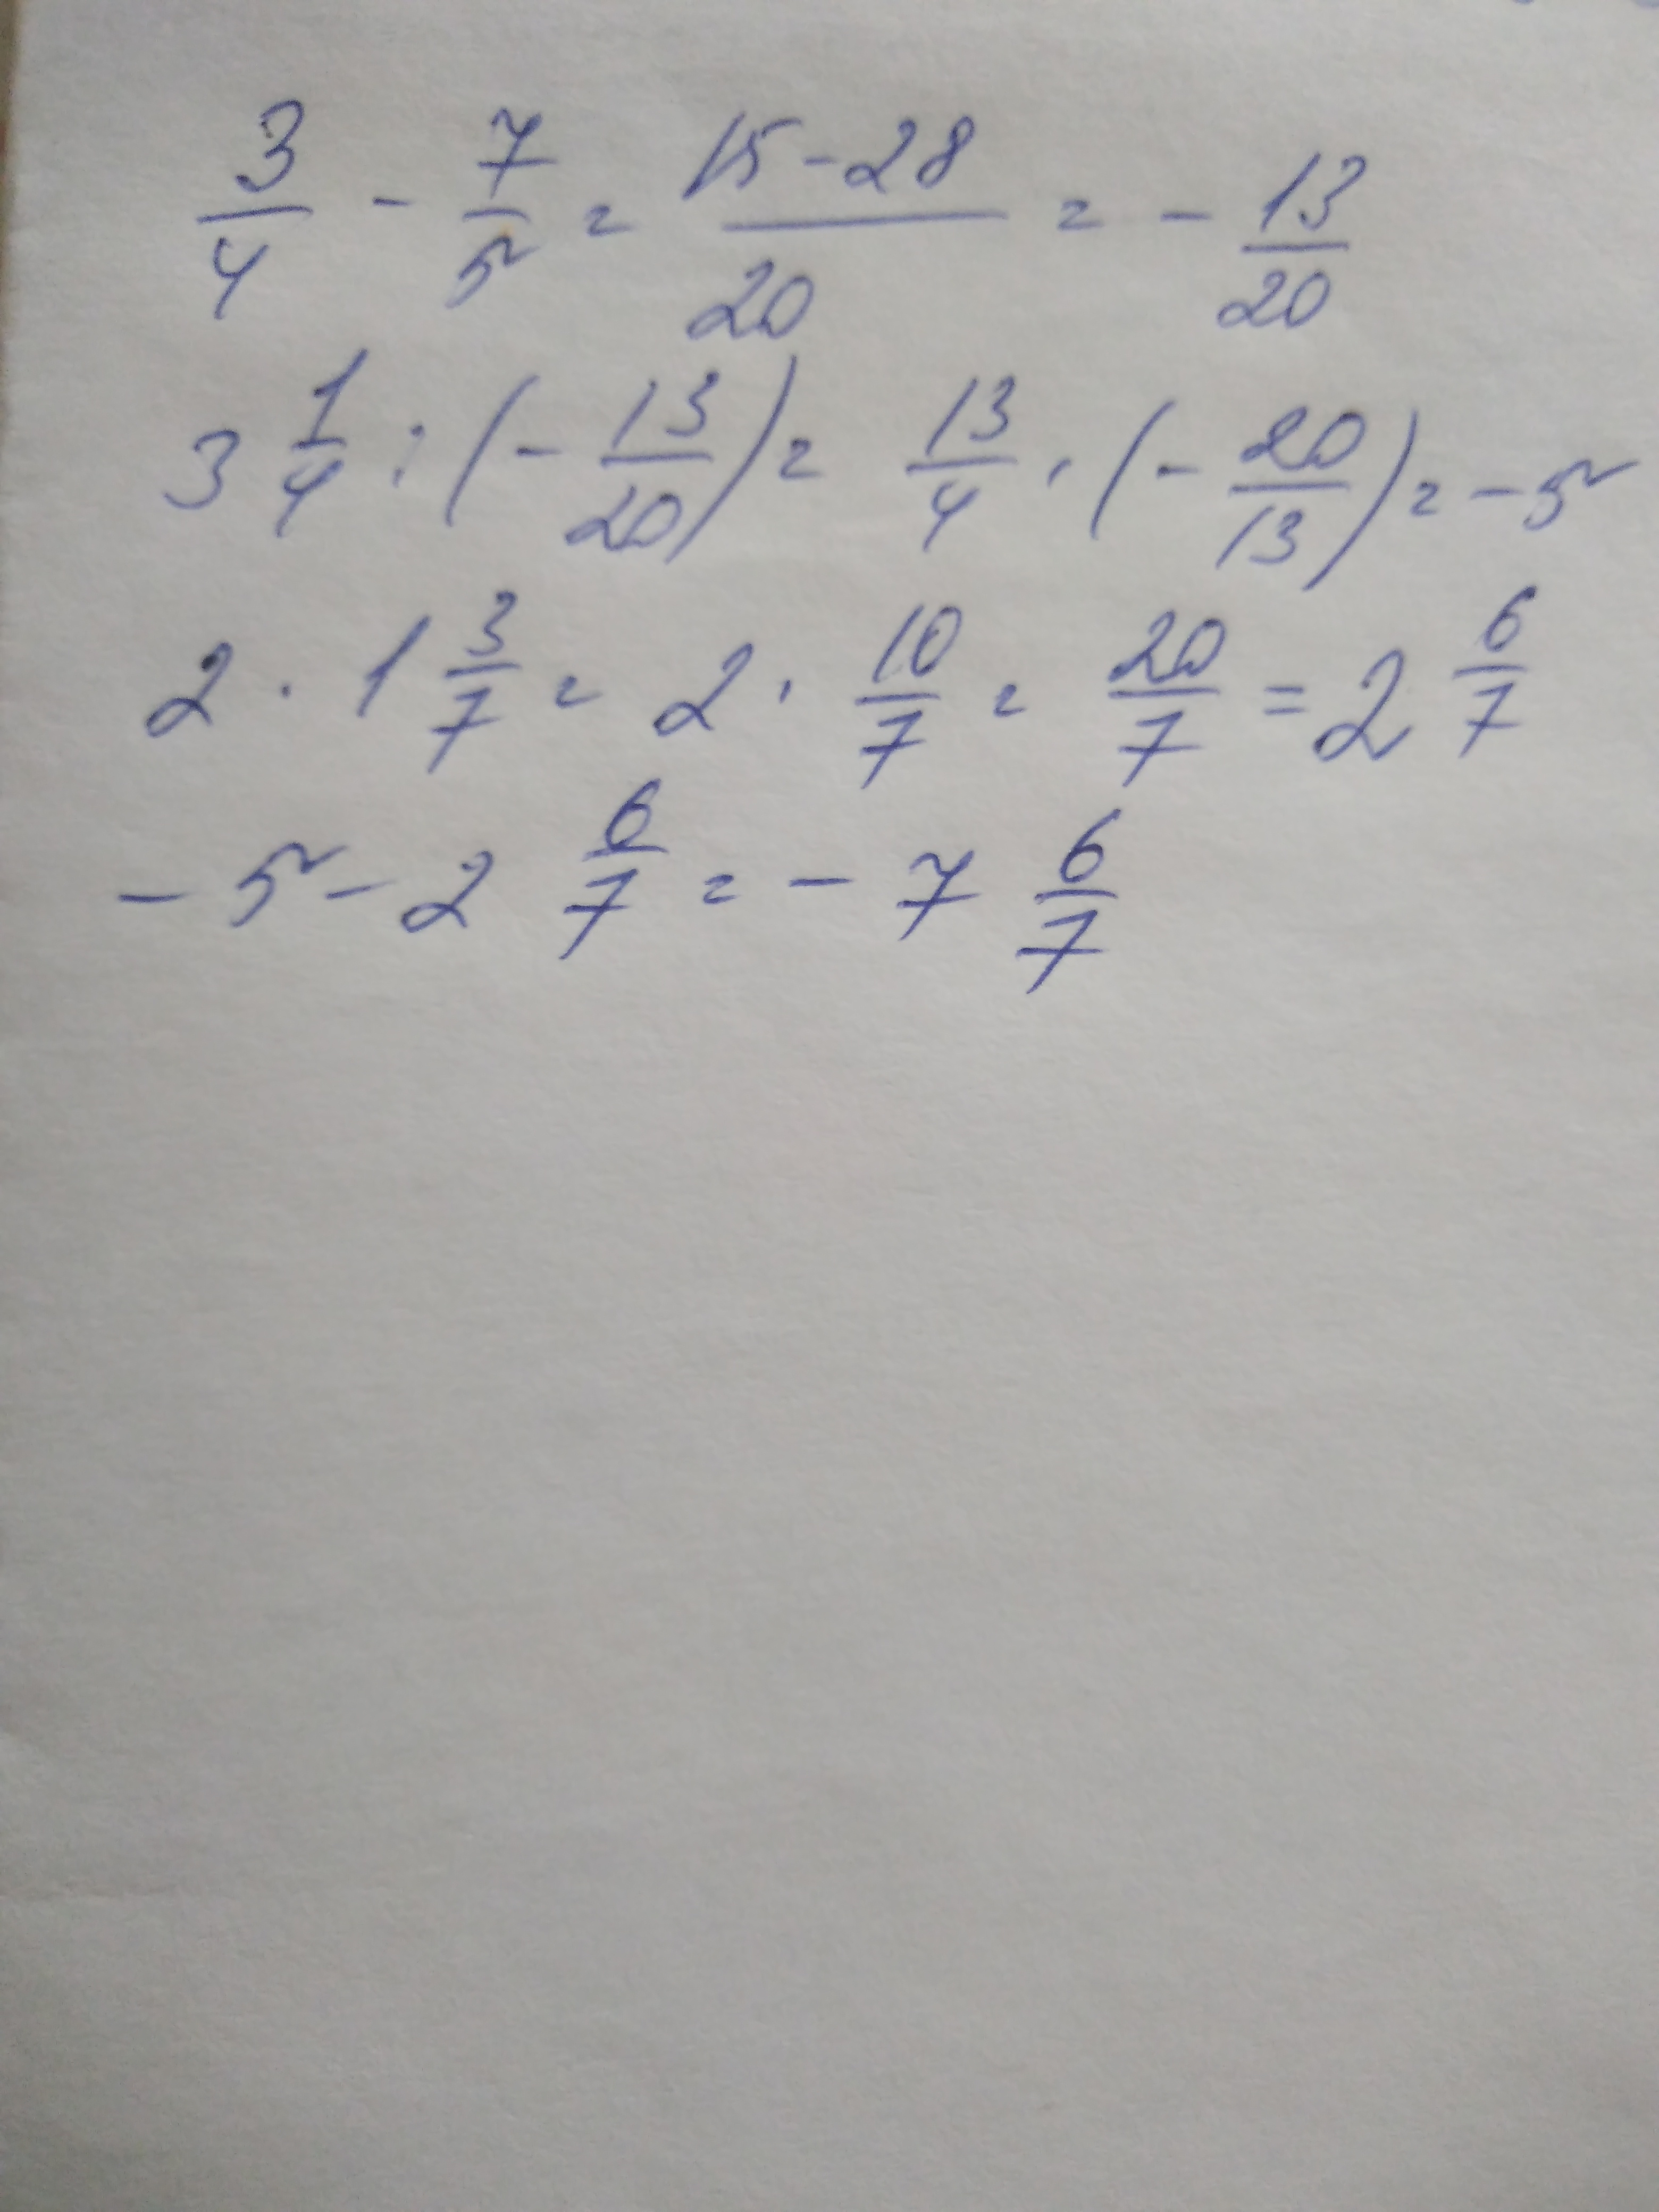 3/4 - 7/5 = (15-28)/20 = - 13/20
3 1/4 : (- 13/20) = 13/4 · (- 20/13) = -5
2 · 1 3/7 = 2 · 10/7 = 20/7 = 2 6/7
- 5 - 2 6/7 = - 7 6/7